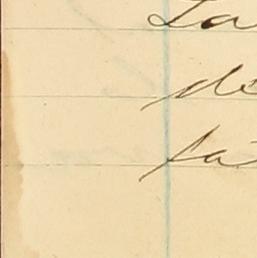 La
de
fa